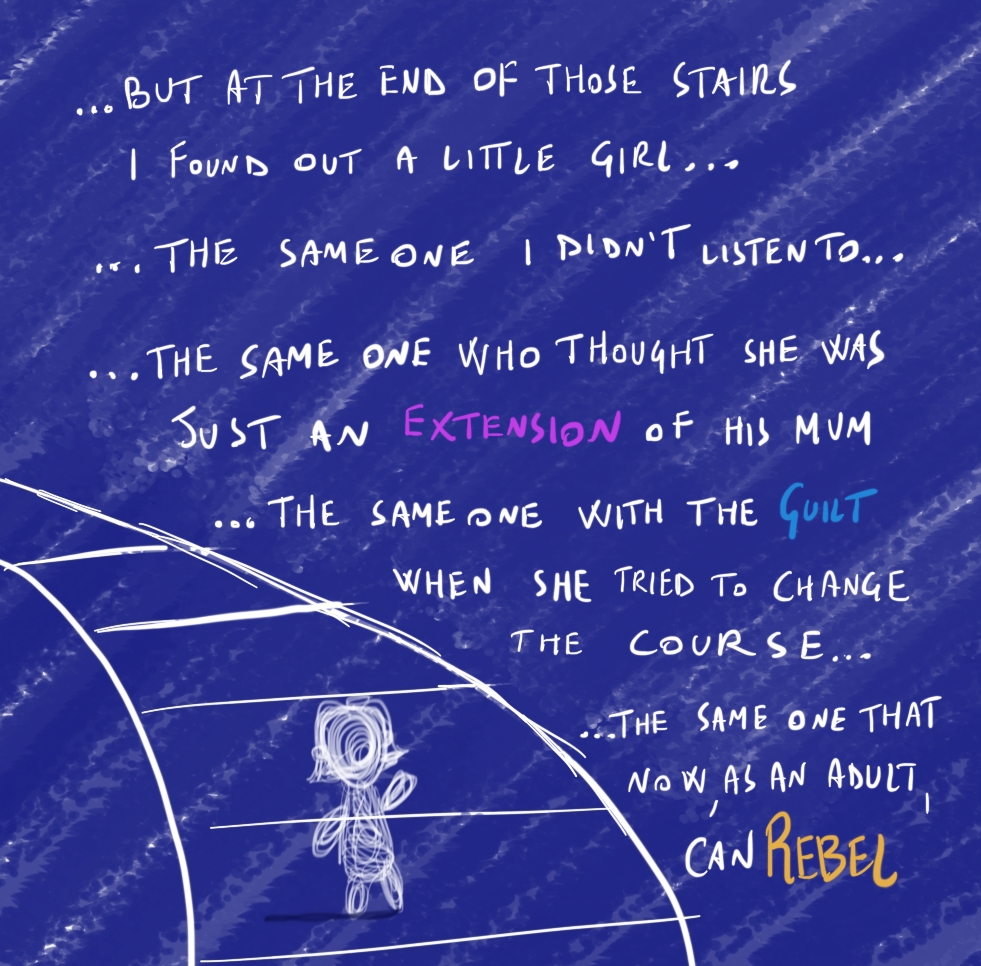 ...BUT AT THE END OF THOSE STAIRS
I FOUND OUT A LITTLE GIRL...
...THE SAME ONE I DIDN'T LISTEN TO...
...THE SAME ONE WHO THOUGHT SHE WAS
JUST AN EXTENSION OF HIS MUM
...THE SAME ONE WITH THE GUILT
WHEN SHE TRIED TO CHANGE
THE COURSE...
...THE SAME ONE THAT
NOW, AS AN ADULT,
CAN REBEL